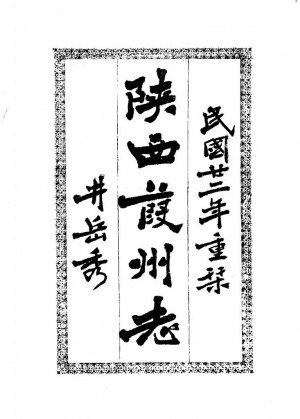 民國廿二年重琹
陝西葭州志
井岳秀